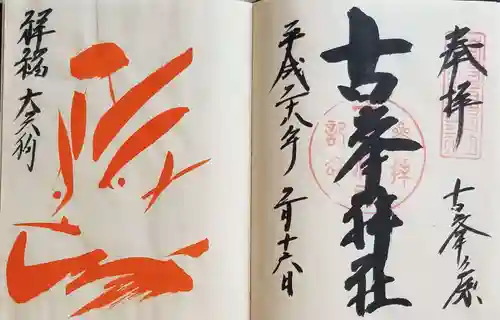 奉拝
古峯ヶ原
古峯神社
平成二十八年二月十六日
祥福
大天狗